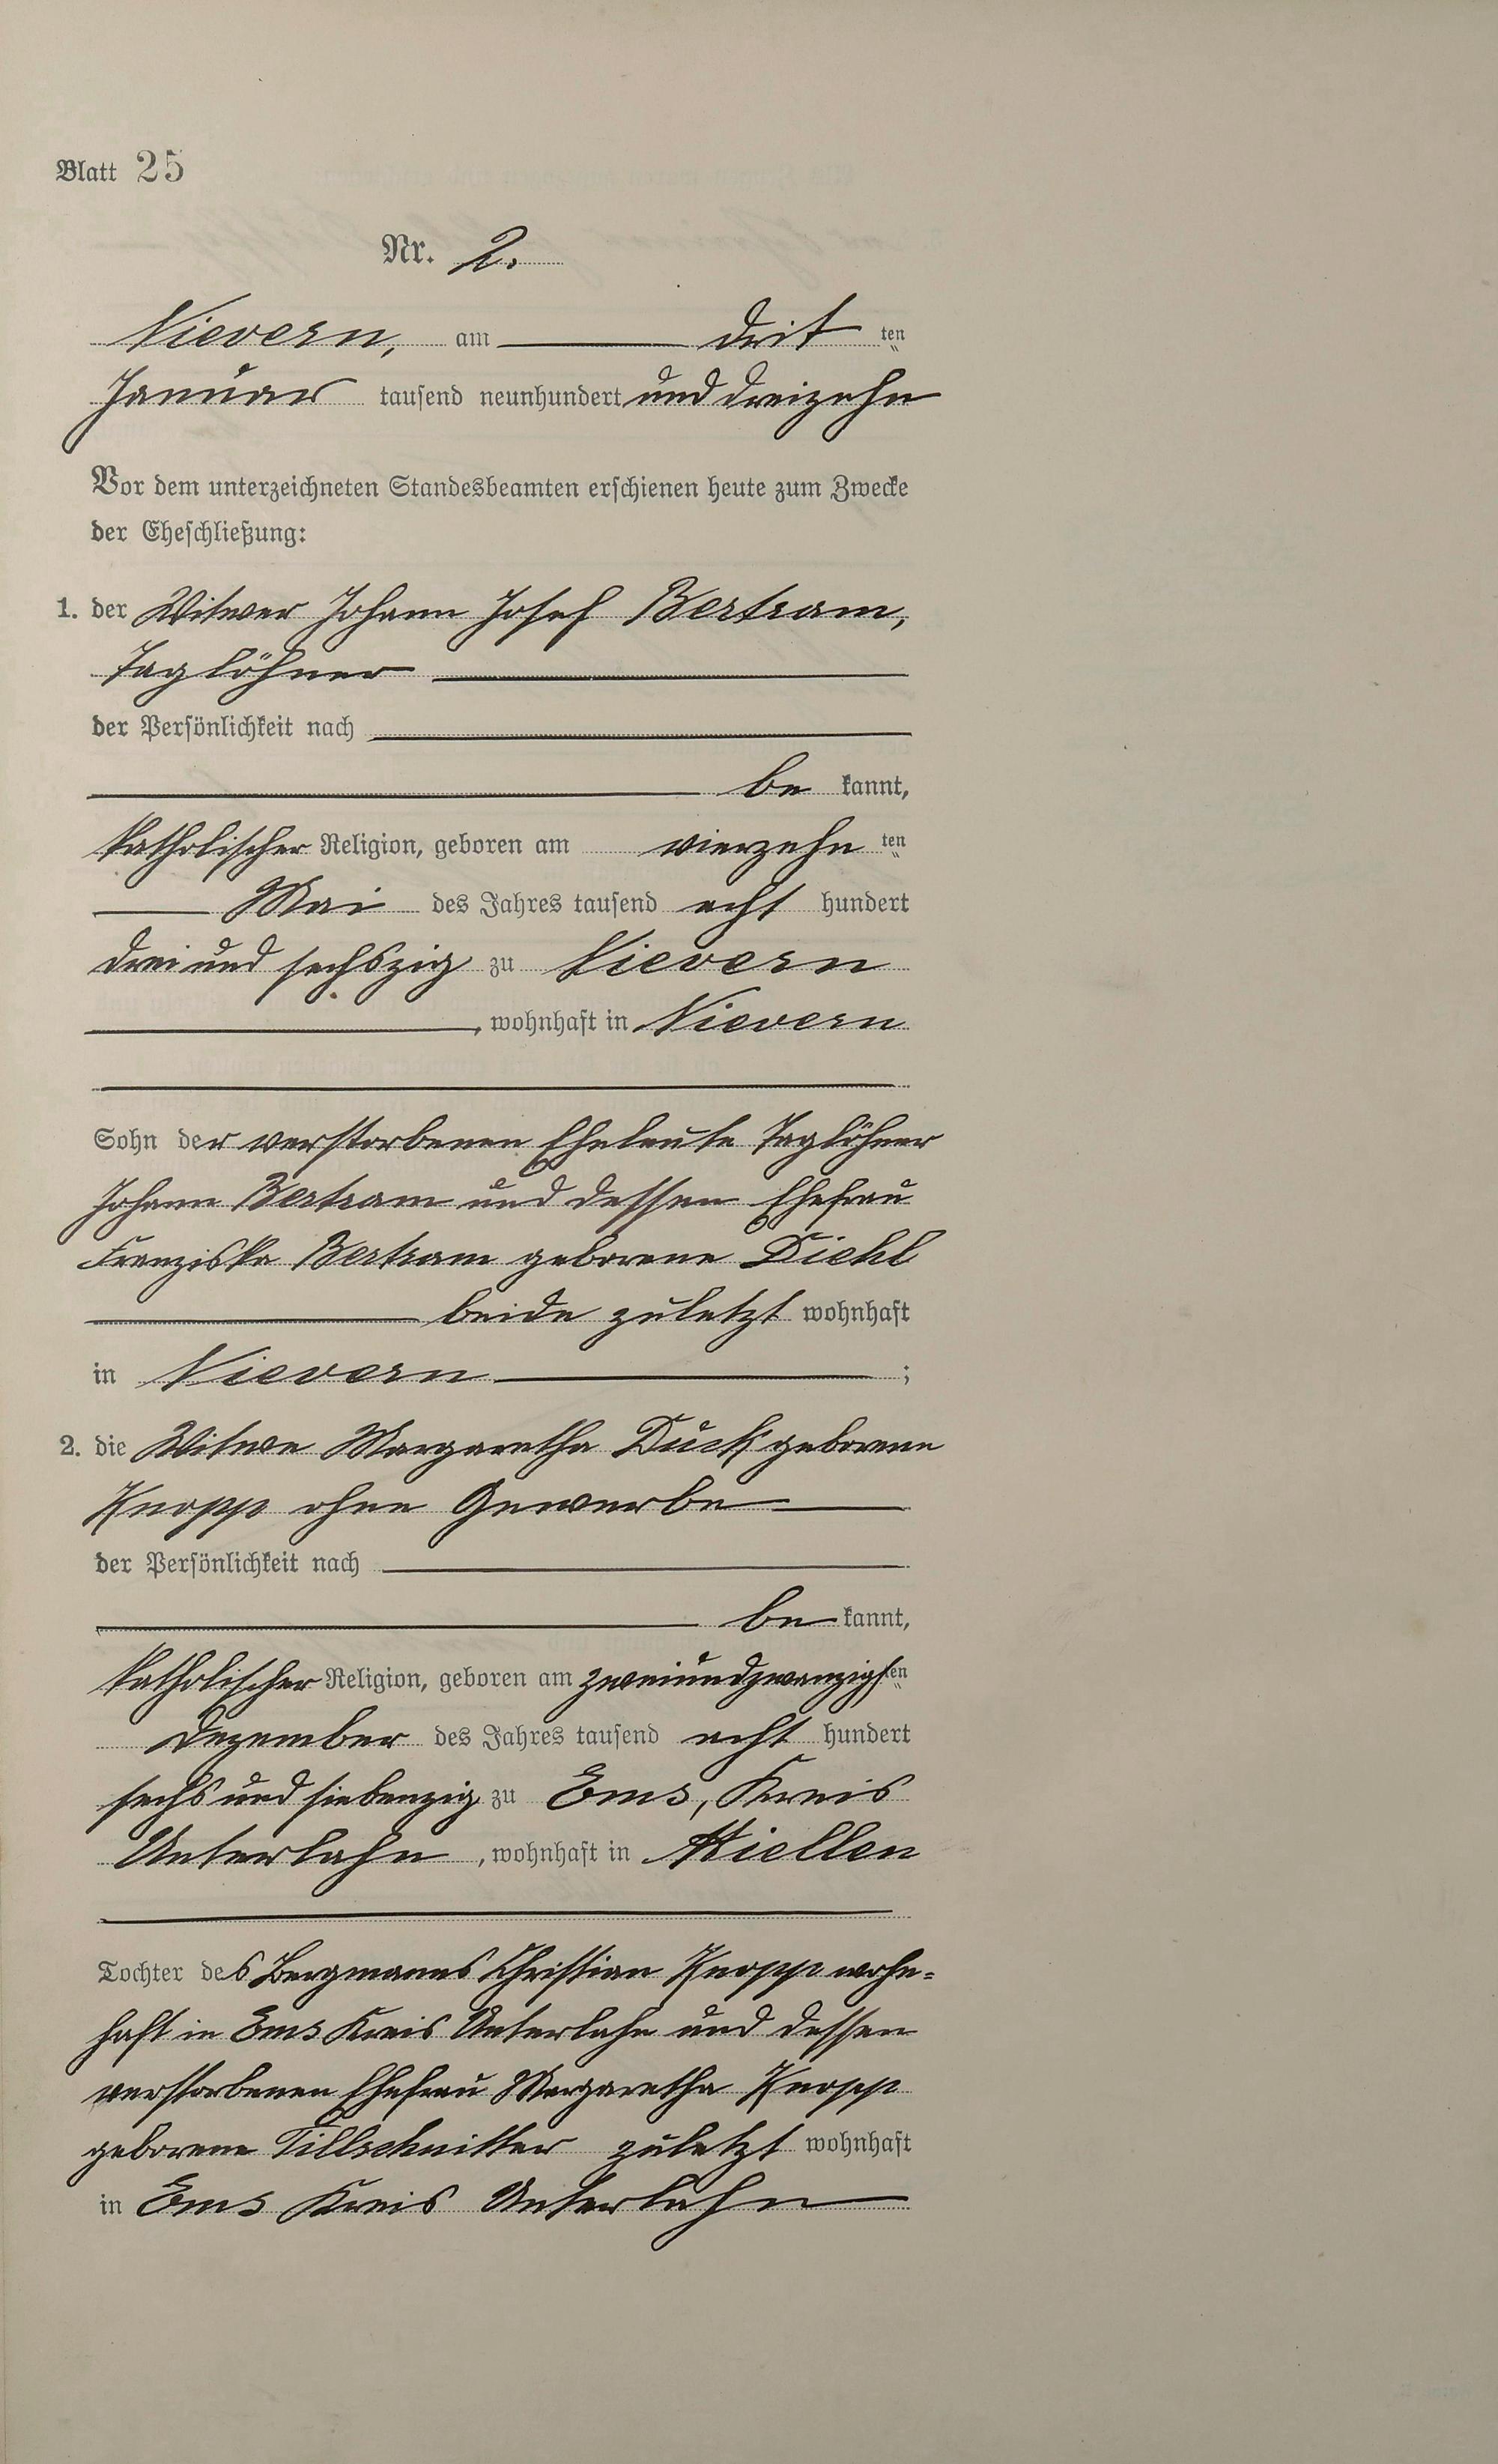 Blatt 25
Nr. 2.
Nievern, am drit ten
Januar tausend neunhundert und dreizehn
Vor dem unterzeichneten Standesbeamten erschienen heute zum Zwecke
der Eheschließung:
1. der Witwer Johann Josef Bertram,
Taglöhner
der Persönlichkeit nach
be kannt,
katholischer Religion, geboren am vierzehn ten
Mai des Jahres tausend acht hundert
drei und sechszig zu Nievern
, wohnhaft in Nievern
Sohn der verstorbenen Eheleute Taglöhner
Johann Bertram und dessen Ehefrau
Franziska Bertram geborene Diehl
beide zuletzt wohnhaft
in Nievern ;
2. die Witwe Margaretha Duck geborene
Knopp ohne Gewerbe
der Persönlichkeit nach
be kannt,
katholischer Religion, geboren am zweiundzwanzigsten
Dezember des Jahres tausend acht hundert
sechs und siebenzig zu Ems, Kreis
Unterlahn , wohnhaft in Miellen
Tochter des Bergmanns Christian Knopp wohn=
haft in Ems Kreis Unterlahn und dessen
verstorbenen Ehefrau Margaretha Knopp
geborene Tillschnitter zuletzt wohnhaft
in Ems Kreis Unterlahn